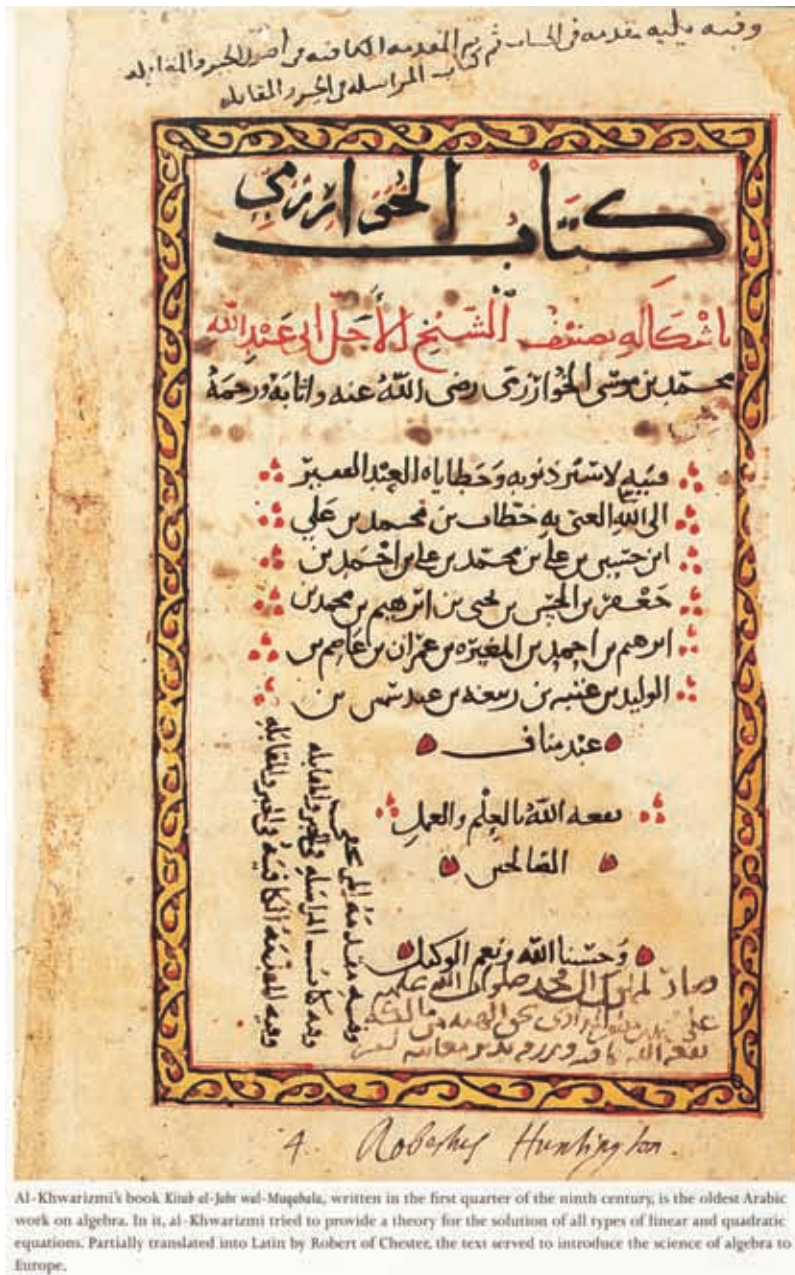 وفيه يليه مقدمه في الحساب ثم المقدمه الكافيه في اصول الجبر والمقابله
كتاب المراسله في الجبر والمقابله
كتاب الخوارزمي
باشكاله تصنيف الشيخ الأجل ابى عبد الله
محمد بن موسى الخوارزمى رضى الله عنه واثابه ورحمه
لاستر ذنوبه وخطاياه العبد الفقير
الى الله الغنى به خطاب بن محمد بن علي
ابن حسين بن على بن محمد بن على بن احمد بن
جعفر بن الحسن بن يحيى بن ابرهيم بن محمد بن
ابرهيم بن احمد بن المغيره بن عمران بن عاصم بن
الوليد بن عتبه بن ربيعه بن عبد شمس بن
عبد مناف
نفعه الله بالعلم والعمل
الصالحين
وحسبنا الله ونعم الوكيل
وفيه مقدمة
وفيه كتاب المراسله في الجبر والمقابله
وفيه المقدمة الكافية في الجبر والمقابله
4. Robertus Huntington.
Al-Khwarizmi's book Kitab al-Jabr wal-Muqabala, written in the first quarter of the ninth century, is the oldest Arabic
work on algebra. In it, al-Khwarizmi tried to provide a theory for the solution of all types of linear and quadratic
equations. Partially translated into Latin by Robert of Chester, the text served to introduce the science of algebra to
Europe.